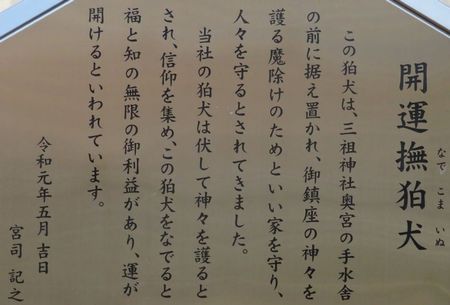 開運撫狛犬
なで こま いぬ
この狛犬は、三祖神社奥宮の手水舎
の前に据え置かれ、御鎮座の神々を
護る魔除けのためといい家を守り、
人々を守るとされてきました。
当社の狛犬は伏して神々を護ると
され、信仰を集め、この狛犬をなでると
福と知の無限の御利益があり、運が
開けるといわれています。
令和元年五月吉日
宮司 記之